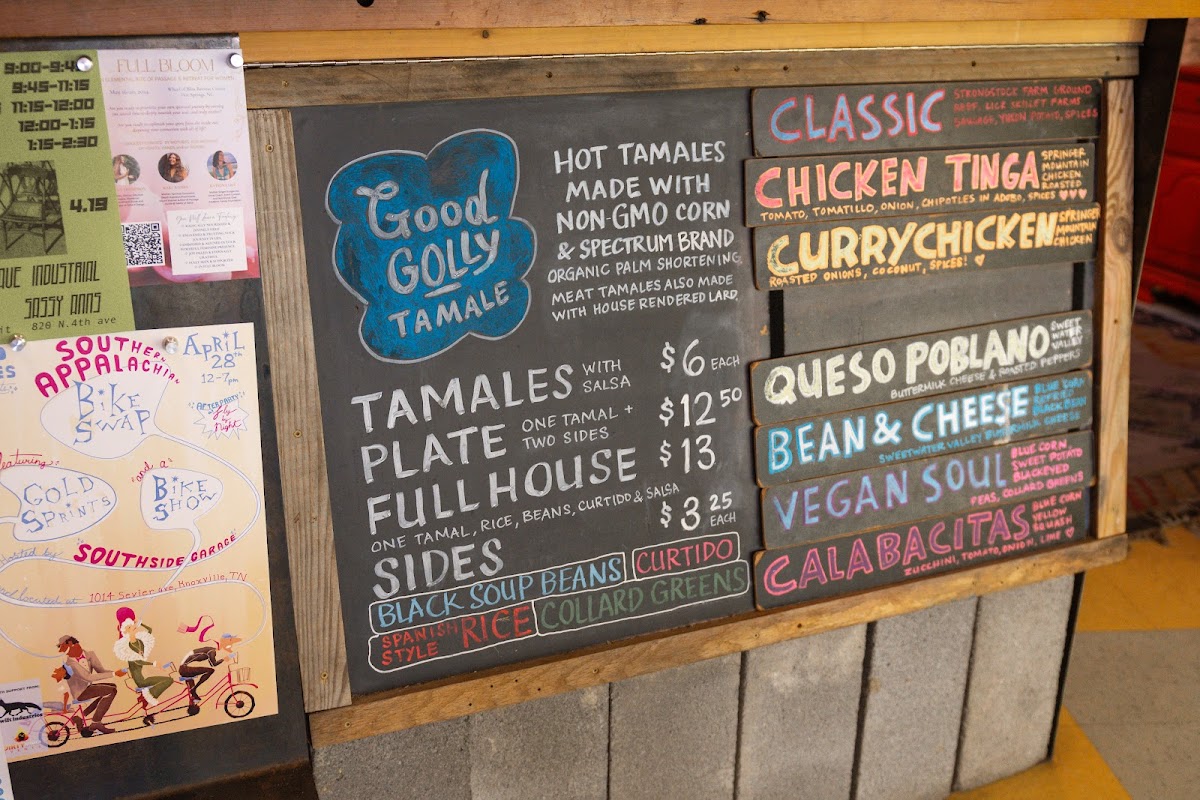 9:00-9:4
9:45-11:15
11:15-12:00
12:00-1:15
1:15-2:30
4.19
QUE INDUSTRIAL
SASSY ANNS
820 N.4th ave
FULL BLOOM
SOUTHERN
APPALACHIAN
BIKE
SWAP
APRIL
28th
12-7pm
AFTERPARTY
Fly by
Night
featuring
GOLD
SPRINTS
"and a"
BIKE
SHOW
hosted by
SOUTHSIDE GARAGE
located at 1014 Sevier Ave, Knoxville, TN
Good
GOLLY
TAMALE
HOT TAMALES
MADE WITH
NON-GMO CORN
& SPECTRUM BRAND
ORGANIC PALM SHORTENING
MEAT TAMALES ALSO MADE
WITH HOUSE RENDERED LARD.
TAMALES WITH SALSA $6 EACH
PLATE ONE TAMAL + TWO SIDES $12.50
FULL HOUSE $13
ONE TAMAL, RICE, BEANS, CURTIDO & SALSA
SIDES $3.25 EACH
BLACK SOUP BEANS CURTIDO
SPANISH STYLE RICE COLLARD GREENS
CLASSIC STRONGSTOCK FARM GROUND
BEEF, LICK SKILLET FARMS
SAUSAGE, YUKON POTATO, SPICES
CHICKEN TINGA SPRINGER
MOUNTAIN
CHICKEN
ROASTED
TOMATO, TOMATILLO, ONION, CHIPOTLES IN ADOBO, SPICES ♥♥♥
CURRY CHICKEN SPRINGER
MOUNTAIN
CHICKEN
ROASTED ONIONS, COCONUT, SPICES! ♡
QUESO POBLANO SWEET
WATER
VALLEY
BUTTERMILK CHEESE & ROASTED PEPPERS
BEAN & CHEESE BLUE CORN
REFRIED
BLACK BEAN
SWEETWATER VALLEY BUTTERMILK CHEESE
VEGAN SOUL BLUE CORN,
SWEET POTATO
BLACKEYED
PEAS, COLLARD GREENS
CALABACITAS BLUE CORN
YELLOW
SQUASH
ZUCCHINI, TOMATO, ONION, LIME ♡